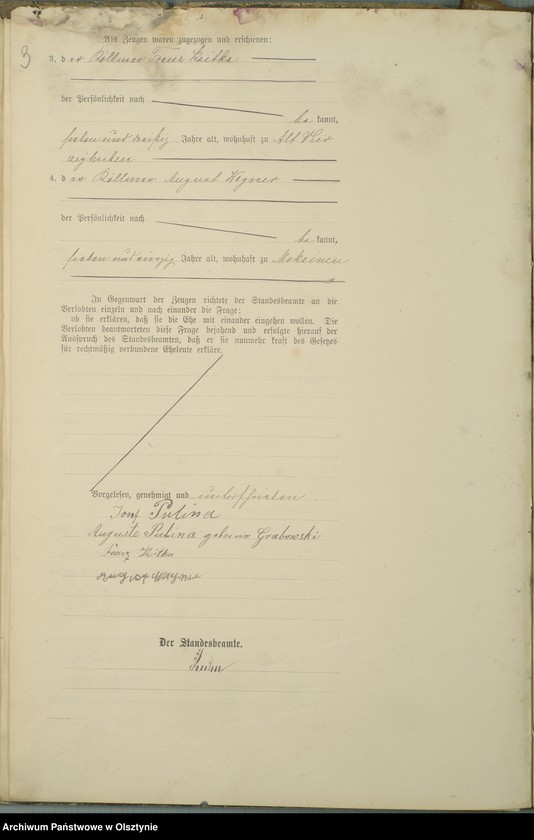 3
Als Zeugen waren zugezogen und erschienen:
3. der Köllmer Franz
der Persönlichkeit nach
bekannt,
sieben und dreißig Jahre alt, wohnhaft zu Alt Vier
zighuben
4. der Köllmer August Wegner
der Persönlichkeit nach
bekannt,
sieben und Jahre alt, wohnhaft zu Mokainen
In Gegenwart der Zeugen richtete der Standesbeamte an die
Verlobten einzeln und nach einander die Frage:
ob sie erklären, daß sie die Ehe mit einander eingehen wollen. Die
Verlobten beantworteten diese Frage bejahend und erfolgte hierauf der
Ausspruch des Standesbeamten, daß er sie nunmehr kraft des Gesetzes
für rechtmäßig verbundene Eheleute erkläre.
Vorgelesen, genehmigt und unterschrieben
Josef Putina
Auguste Putina geborene Grabowski
Franz
August
Der Standesbeamte.
Archiwum Państwowe w Olsztynie